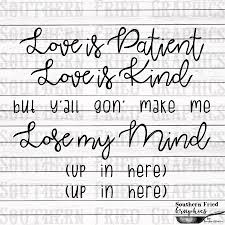 Love is Patient
Love is Kind
but y'all gon' make me
Lose my Mind
(up in here)
(up in here)
Southern Fried
Graphics